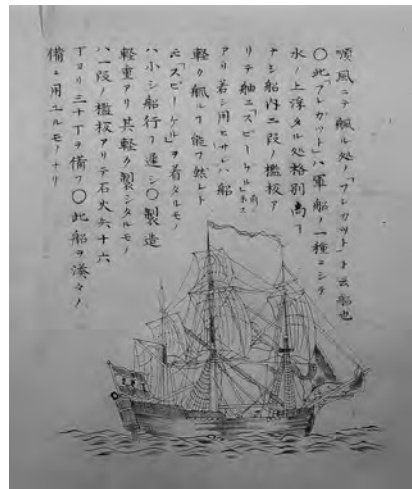 順風ニテ颿ル処ノ「フレガット」ト云船也
〇此「フレガット」ハ軍船ノ一種ニシテ
水ノ上浮タル処格別高ク
ナシ船内二段ノ檻板ア
リテ舳ニ「スピーゲル」
アリ若シ用ヒサレハ船
軽ク颿ルヿ能ワ然レト
元「スピーゲル」ヲ着タルモノ
ハ小シ船行ヿ遅シ〇製造
軽重アリ其軽ク製シタルモノ
ハ一段ノ檻板アリテ石火矢十六
丁ヨリ三十丁ヲ備フ〇此船ヲ湊々ノ
備ニ用ユルモノナリ